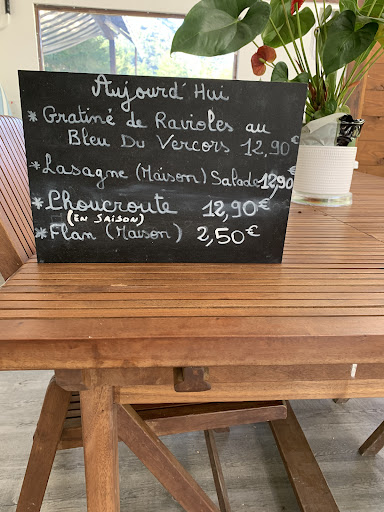 Aujourd'Hui
* Gratiné de Ravioles au
Bleu Du Vercors 12,90€
* Lasagne (Maison) Salade 12,90€
* Choucroute 12,90€
(EN SAISON)
* Flan (Maison) 2,50€